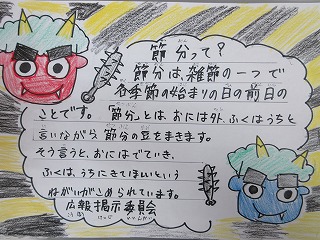 節分って?
節分は、雑節の一つで
各季節の始まりの日の前日の
ことです。「節分」とは、おには外、ふくはうちと
言いながら 節分の豆をまきます。
そう言うと、おにはでていき、
ふくは、うちにきてほしいという
ねがいがこめられています。
広報掲示委員会